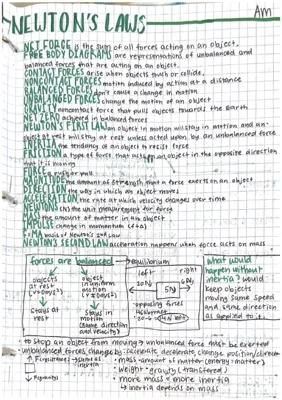 Am
NEWTON'S LAWS
NET FORCE is the sum of all forces acting on an object.
FREE BODY DIAGRAMS are representations of unbalanced and
balanced forces that are acting on an object.
CONTACT FORCES arise when objects touch or collide.
NONCONTACT FORCES motion induced by acting at a distance
BALANCED FORCES don't cause a change in motion
UNBALANCED FORCES change the motion of an object
GRAVITY noncontact force that pulls objects towards the Earth
NET ZERO achieved in balanced forces
NEWTON'S FIRST LAW an object in motion will stay in motion and an
object at rest will stay at rest unless acted upon by an unbalanced force
INERTIA the tendency of an object to resist force
FRICTION a type of force that acts on an object in the opposite direction
that it is moving
FORCE a push or pull
MAGNITUDE the amount of strength that a force exerts on an object
DIRECTION the way in which an object moves
ACCELERATION the rate at which velocity changes over time.
NEWTONS (N) the unit measurement for force
MASS the amount of matter in an object
IMPULSE change in momentum
F=MA basis of Newton's 2nd Law
NEWTON'S SECOND LAW acceleration happens when force acts on mass
forces are balanced → equilibrium
objects
at rest
Stays at
rest
object
in uniform
motion
stays in
motion
(same direction
and velocity)
left
right
opposing forces
subtract
what would
happen without
inertia? would
keep objects
moving same speed
and same direction
as applied to it.
→ to stop an object from moving → unbalanced force must be exerted
→ unbalanced forces change by: accelerate, decelerate, change position/direction
• mass = amount of matter
• weight = gravity
• more mass = more inertia
↳ inertia depends on mass